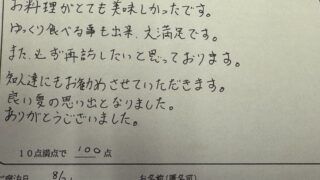 お料理がとても美味しかったです。
ゆっくり食べる事も出来、大満足です。
また、必ず再訪したいと思っております。
知人達にもお勧めさせていただきます。
良い夏の思い出となりました。
ありがとうございました。
10点満点で 100 点